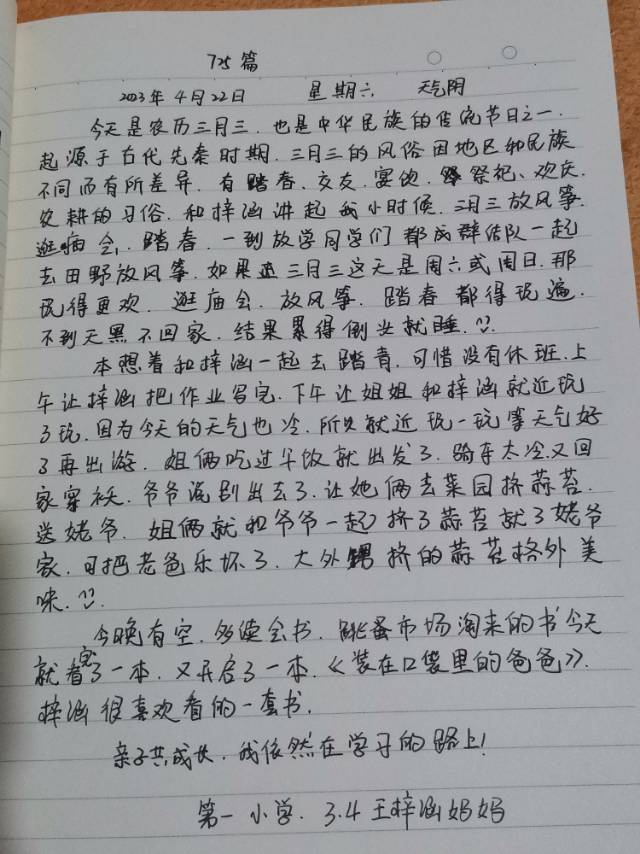 725篇
2023年4月22日 星期六 天气阴
今天是农历三月三.也是中华民族的传统节日之一.
起源于古代先秦时期.三月三的风俗因地区和民族
不同而有所差异.有踏春.交友.宴饮.祭祀、欢庆.
农耕的习俗.和梓涵讲起我小时候.三月三放风筝.
逛庙会.踏春.一到放学同学们都成群结队一起
去田野放风筝.如果三月三这天是周六或周日.那
玩得更欢.逛庙会.放风筝.踏春都得玩遍.
不到天黑不回家.结果累得倒头就睡.
本想着和梓涵一起去踏青.可惜没有休班.上
午让梓涵把作业写完.下午让姐姐和梓涵就近玩
了玩.因为今天的天气也冷.所以就近玩一玩等天气好
了再出游.姐俩吃过午饭就出发了.骑车太冷又回
家穿袄.爷爷说别出去了.让她俩去菜园挤蒜苔.
送姥爷.姐俩就和爷爷一起挤了蒜苔就了姥爷
家.可把老爸乐坏了.大外甥挤的蒜苔格外美
味.
今晚有空.多读会书.跳蚤市场淘来的书今天
就看完了一本.又开启了一本.《装在口袋里的爸爸》.
梓涵很喜欢看的一套书.
亲子共成长.我依然在学习的路上!
第一小学.3.4王梓涵妈妈